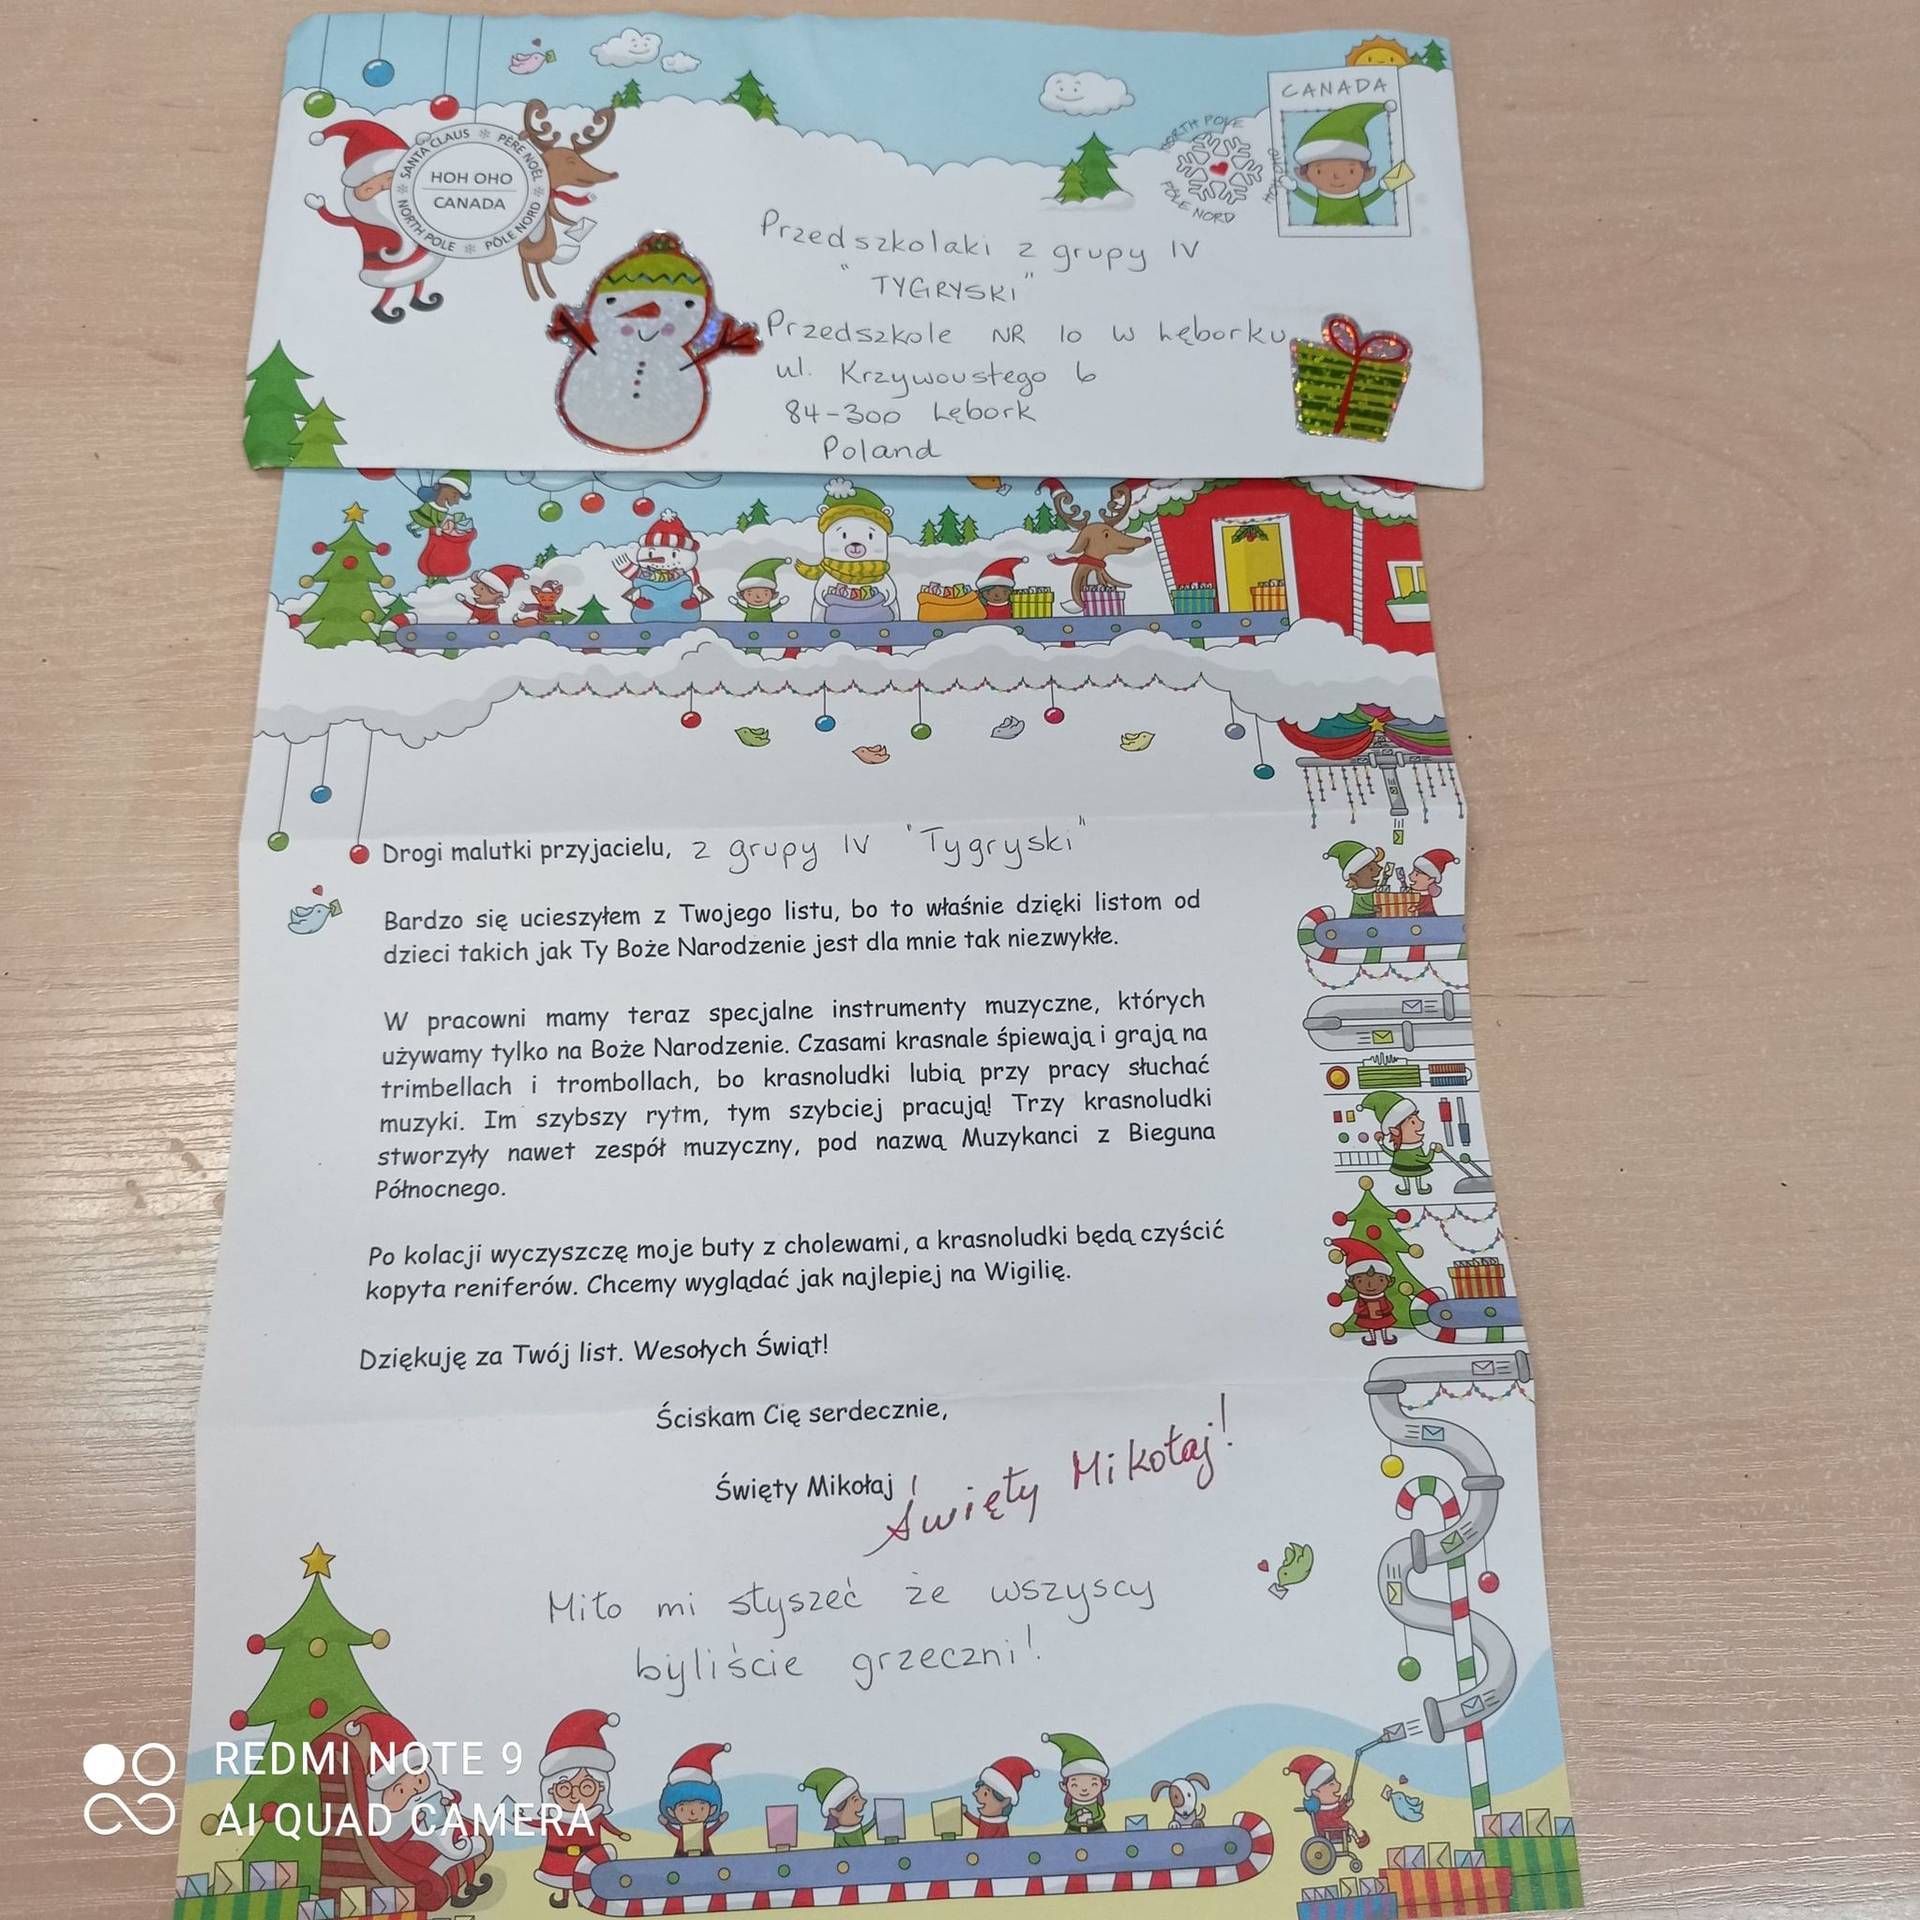 CANADA
SANTA CLAUS * PÈRE NOËL
HOH OHO
CANADA
NORTH POLE * PÔLE NORD
NORTH POLE
PÔLE NORD
Przedszkolaki z grupy IV
"TYGRYSKI"
Przedszkole NR 10 w Łęborku
ul. Krzywoustego 6
84-300 Łębork
Poland
Drogi malutki przyjacielu, z grupy IV "Tygryski"
Bardzo się ucieszyłem z Twojego listu, bo to właśnie dzięki listom od
dzieci takich jak Ty Boże Narodzenie jest dla mnie tak niezwykłe.
W pracowni mamy teraz specjalne instrumenty muzyczne, których
używamy tylko na Boże Narodzenie. Czasami krasnale śpiewają i grają na
trimbellach i trombollach, bo krasnoludki lubią przy pracy słuchać
muzyki. Im szybszy rytm, tym szybciej pracują! Trzy krasnoludki
stworzyły nawet zespół muzyczny, pod nazwą Muzykanci z Bieguna
Północnego.
Po kolacji wyczyszczę moje buty z cholewami, a krasnoludki będą czyścić
kopyta reniferów. Chcemy wyglądać jak najlepiej na Wigilię.
Dziękuję za Twój list. Wesołych Świąt!
Ściskam Cię serdecznie,
Święty Mikołaj
Święty Mikołaj!
Miło mi słyszeć że wszyscy
byliście grzeczni!
REDMI NOTE 9
AI QUAD CAMERA